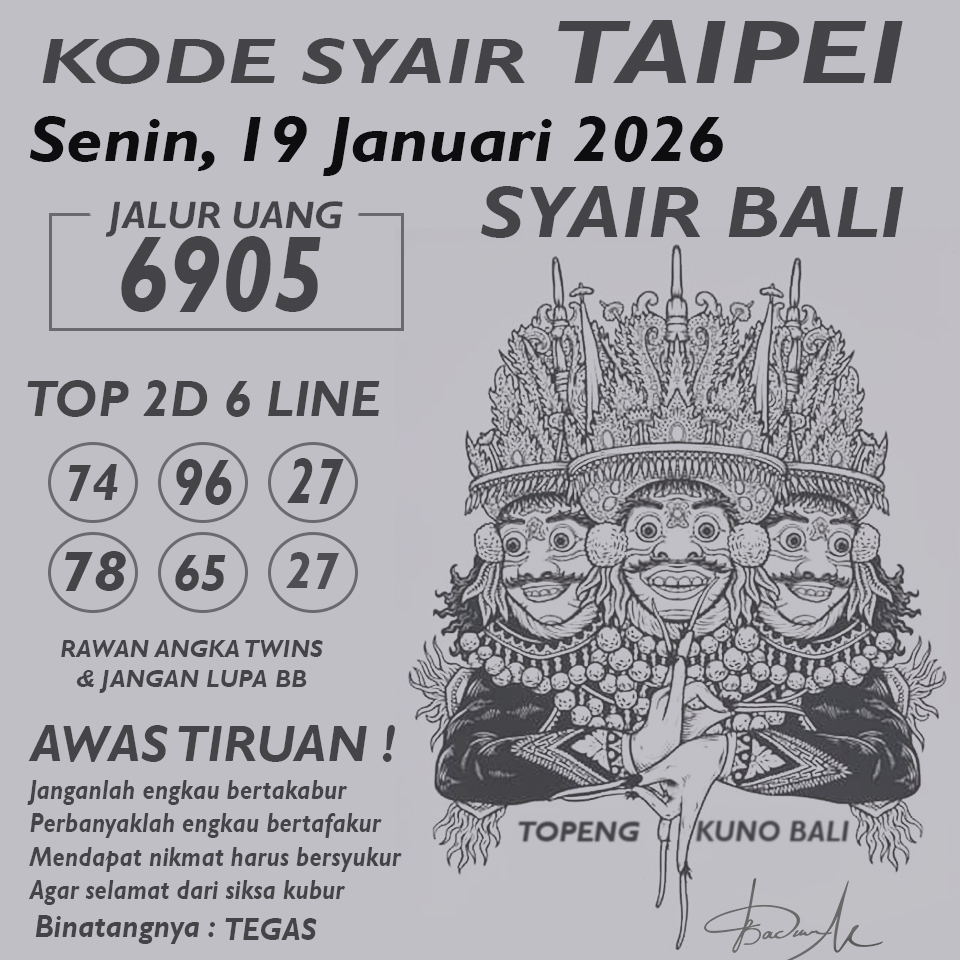 KODE SYAIR TAIPEI
Senin, 19 Januari 2026
SYAIR BALI
JALUR UANG
6905
TOP 2D 6 LINE
74 96 27
78 65 27
RAWAN ANGKA TWINS
& JANGAN LUPA BB
AWAS TIRUAN !
Janganlah engkau bertakabur
Perbanyaklah engkau bertafakur
Mendapat nikmat harus bersyukur
Agar selamat dari siksa kubur
Binatangnya : TEGAS
TOPENG KUNO BALI